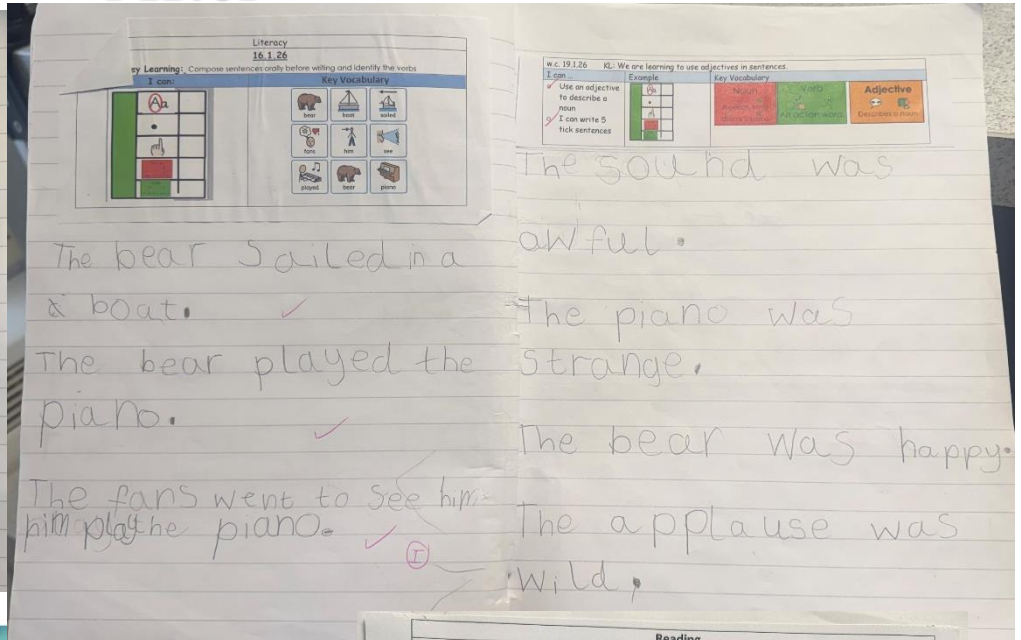 Literacy
16.1.26
ey Learning: Compose sentences orally before writing and identify the verbs
I can:
Key Vocabulary
Aa
bear
boat
sailed
fans
him
see
played
bear
piano
The bear Sailed in a
a boat.
The bear played the
piano.
The fans went to See him
him play the piano.
I
w.c. 19.1.26 KL: We are learning to use adjectives in sentences.
I can ...
Example
Key Vocabulary
Use an adjective
to describe a
noun
I can write 5
tick sentences
Noun
Verb
An action word
Adjective
Describes a noun
The sound was
awful.
The piano was
strange.
The bear was happy.
The applause was
wild.
Reading